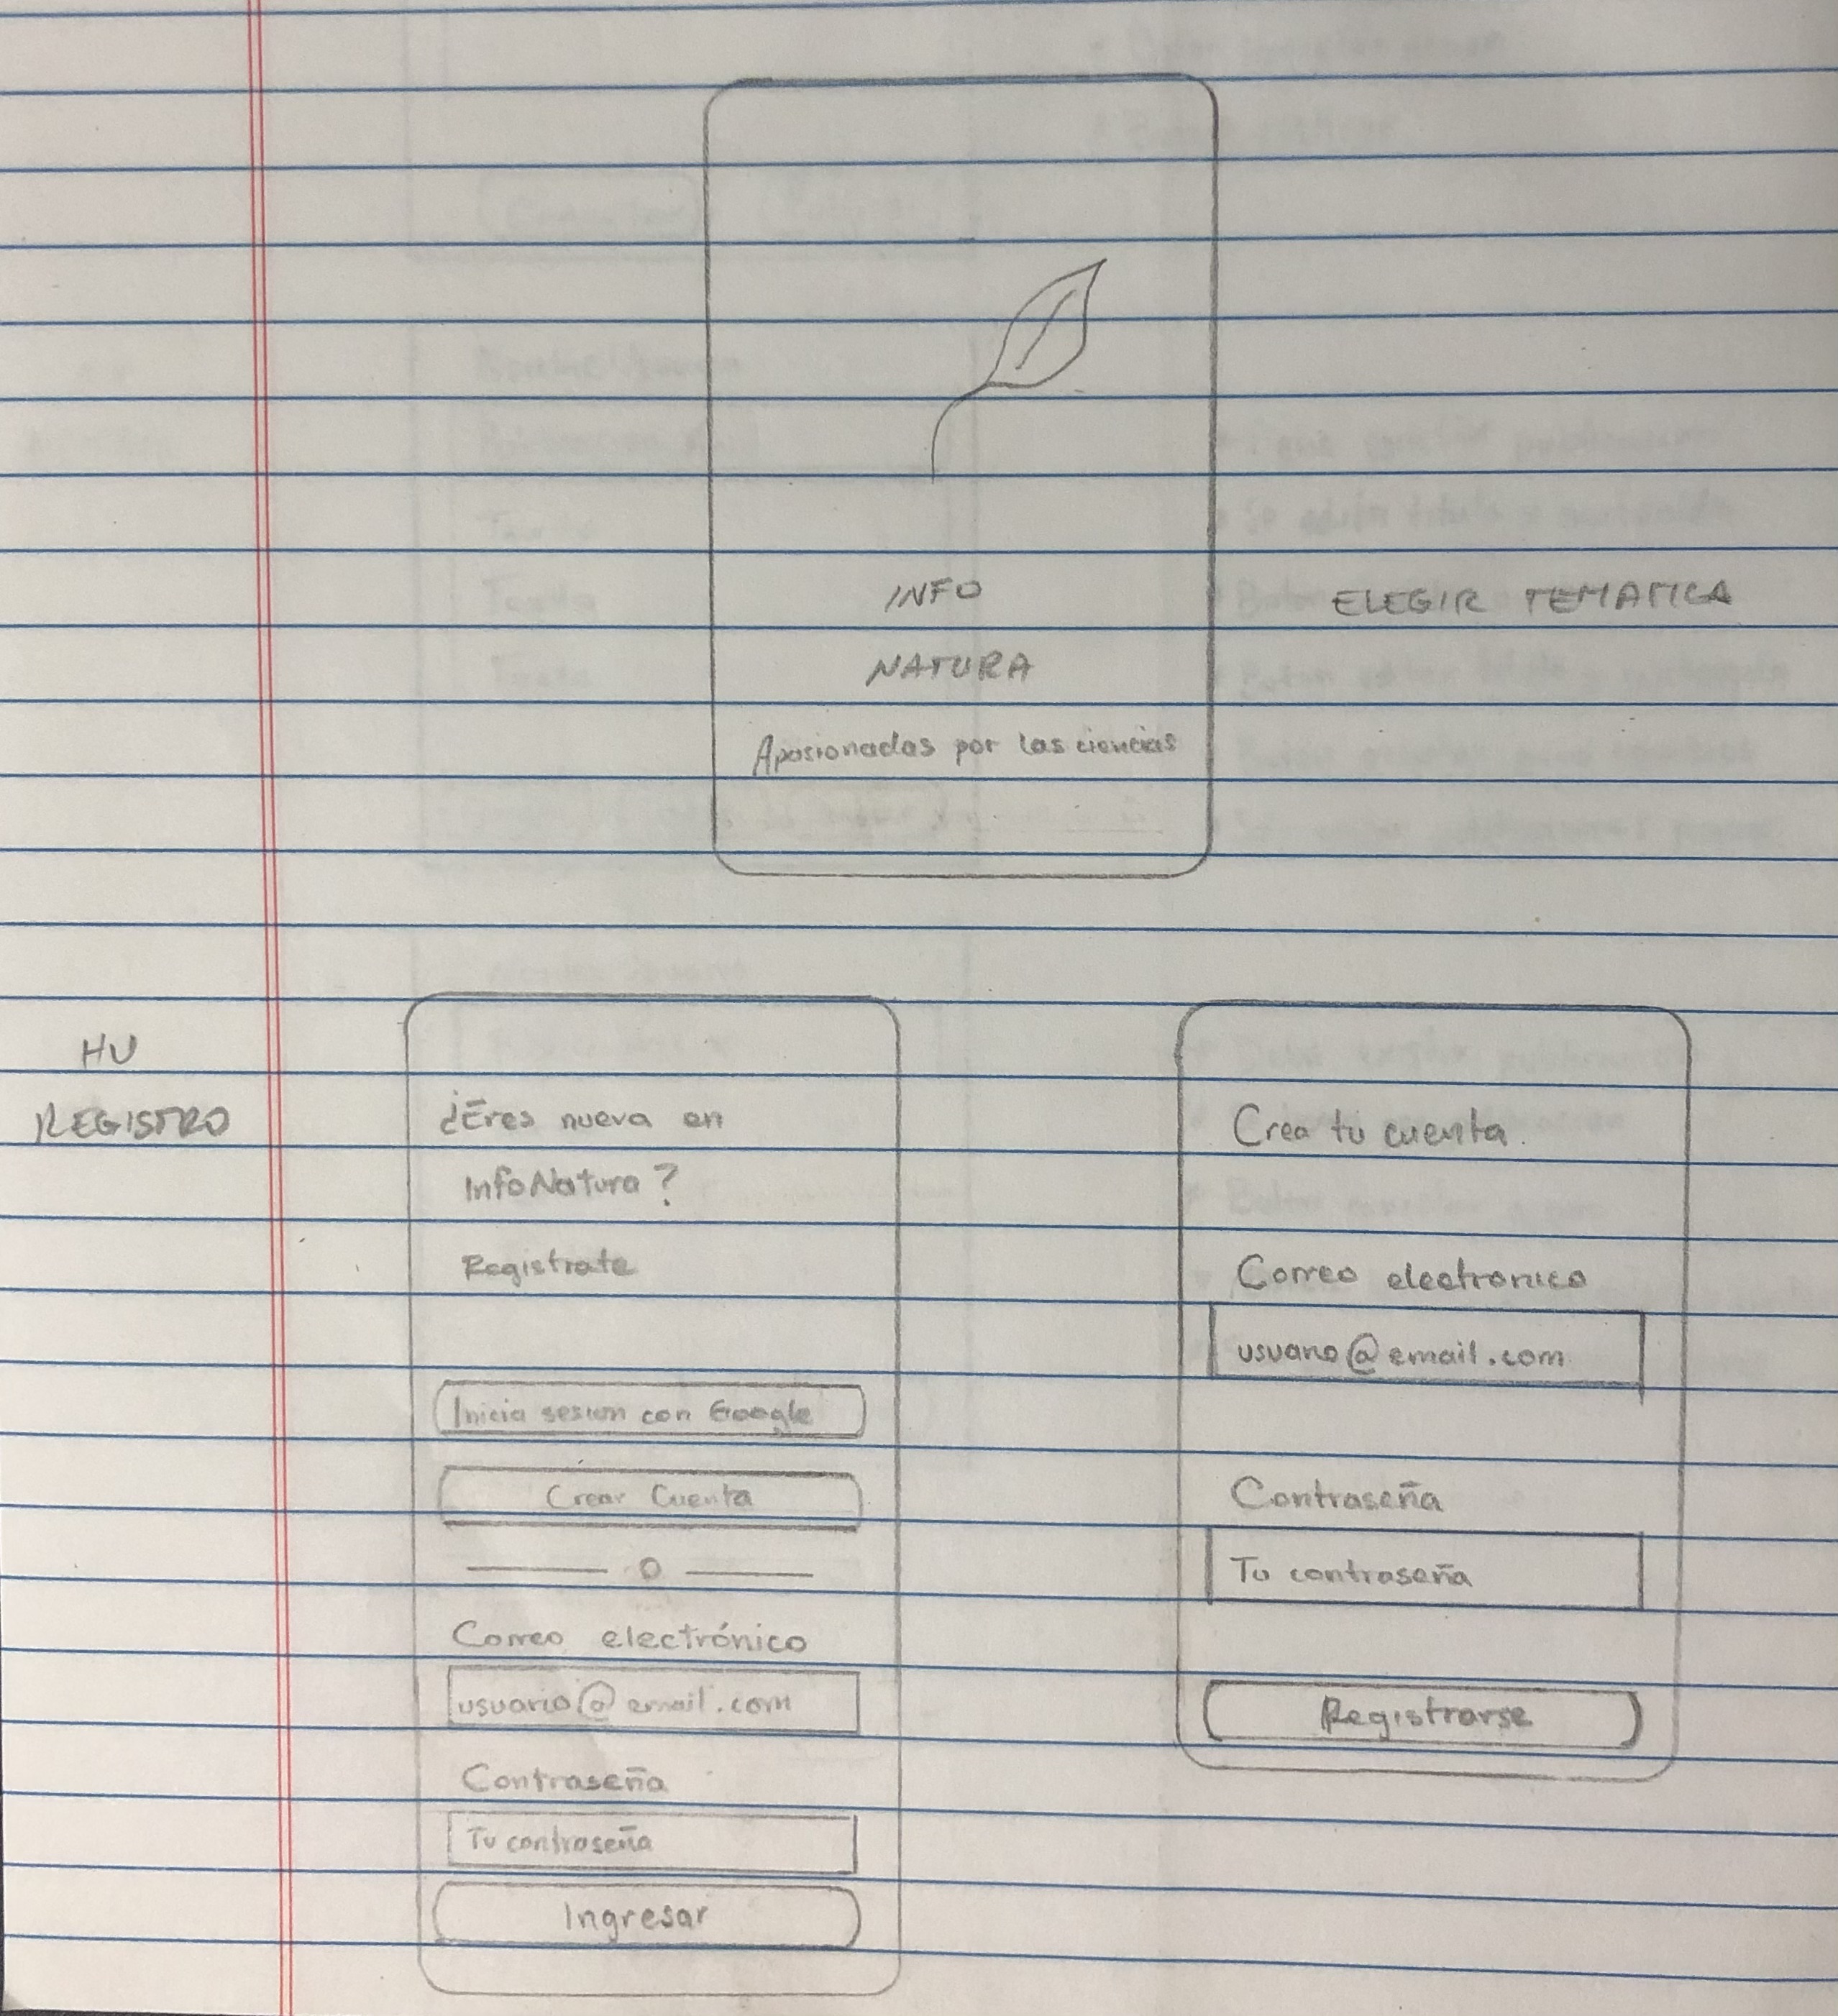 INFO
ELEGIR TEMATICA
NATURA
Apasionadas por las ciencias
HU
REGISTRO
¿Eres nueva en
InfoNatura?
Registrate
Inicia sesion con Google
Crear Cuenta
O
Correo electrónico
usuario@email.com
Contraseña
Tu contraseña
Ingresar
Crea tu cuenta.
Correo electronico
usuario@email.com
Contraseña
Tu contraseña
Registrarse